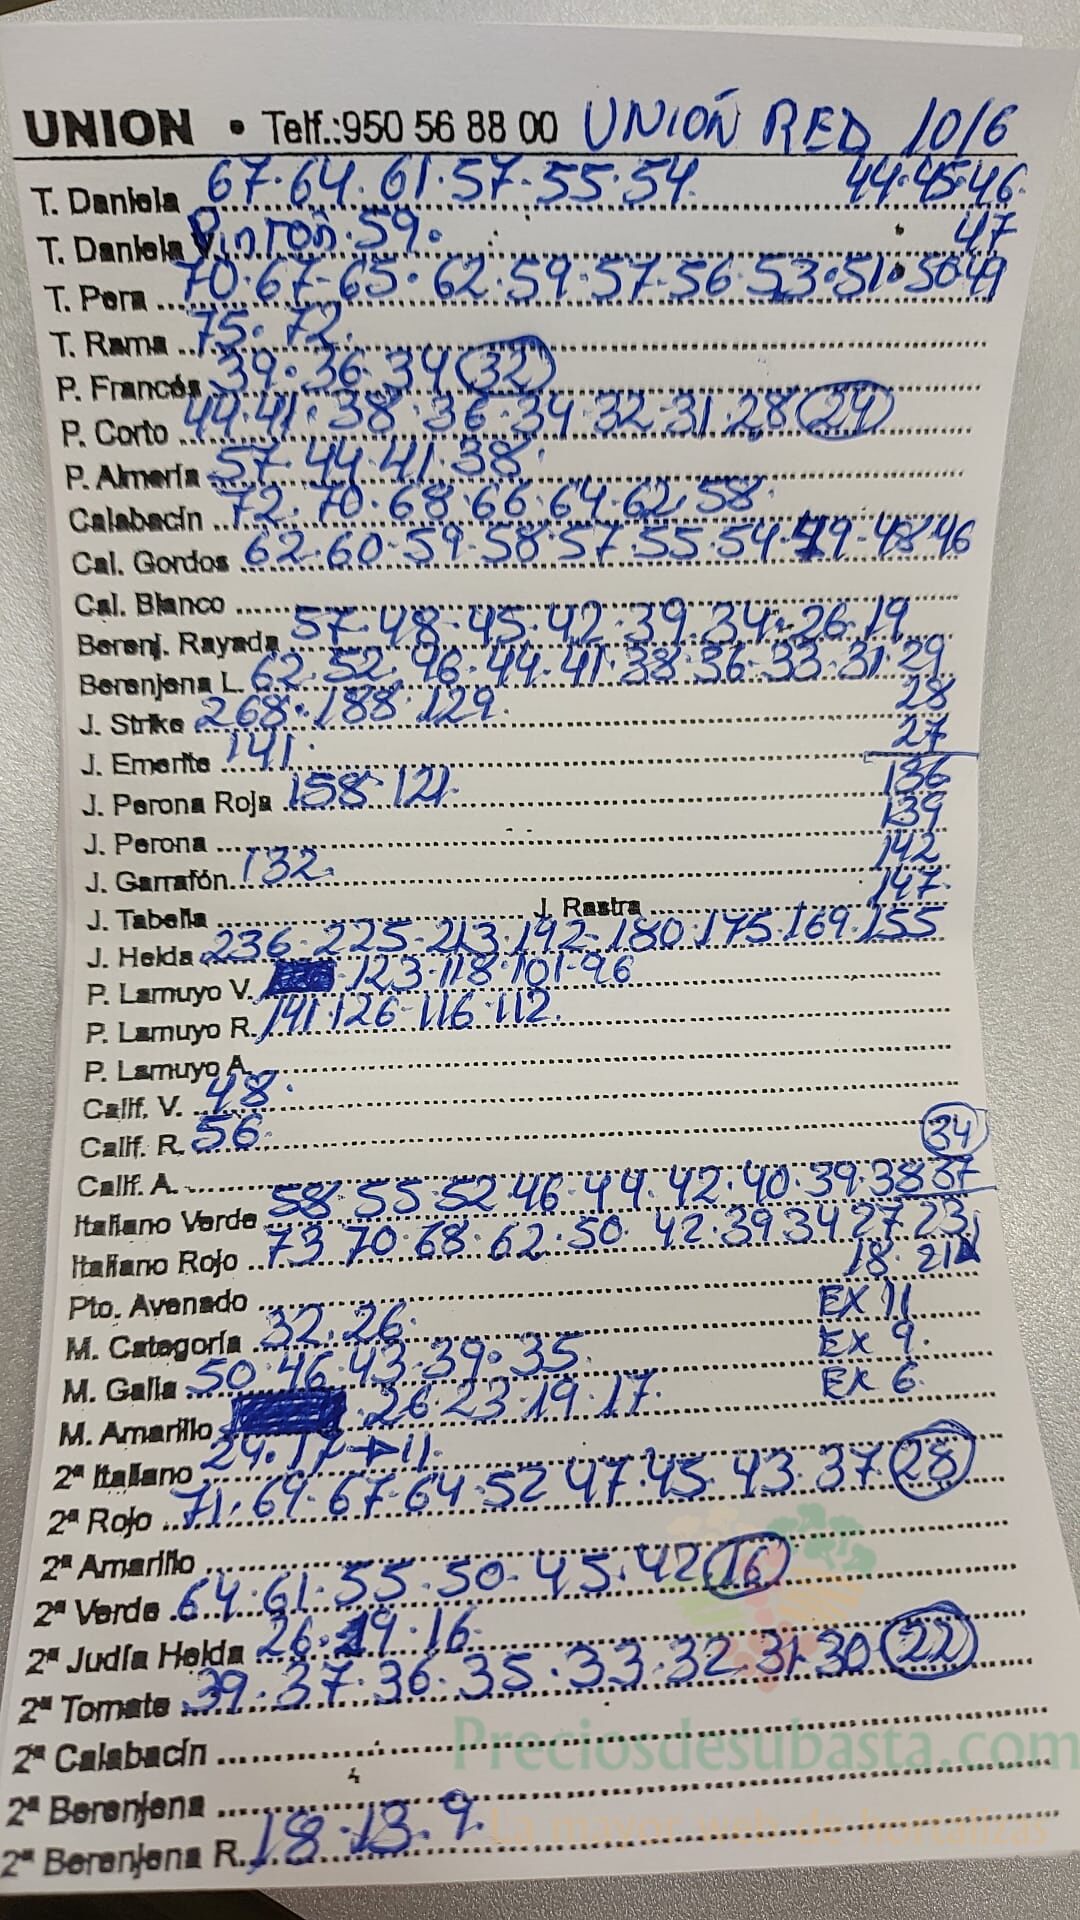 UNION • Telf.:950 56 88 00 UNIÓN RED 10/6
T. Daniela 67·64·61·57·55·54. 44·45·46·
T. Daniela V. Pintón·59. 47
T. Pera 70·67·65·62·59·57·56·53·51·50·49
T. Rama 75·72.
P. Francés 39·36·34 32
P. Corto 44·41·38·36·34·32·31·28 29
P. Almería 57·44·41·38·
Calabacín 72·70·68·66·64·62·58·
Cal. Gordos 62·60·59·58·57·55·54·49·48·46
Cal. Blanco
Berenj. Rayada 57·48·45·42·39·34·26·19
Berenjena L. 62·52·46·44·41·38·36·33·31·29
J. Strike 268·188·129. 28
J. Emerite 141. 27
J. Perona Roja 158·121. 136
J. Perona 139
J. Garrafón 132. 142
J. Tabella J. Rastra 147.
J. Helda 236·225·213·192·180·175·169·155
P. Lamuyo V. 123·118·101·96
P. Lamuyo R. 141·126·116·112.
P. Lamuyo A.
Calif. V. 48.
Calif. R. 56. 34
Calif. A.
Italiano Verde 58·55·52·46·44·42·40·39·38 37
Italiano Rojo 73·70·68·62·50· 42·39 34 27 23
18·21
Pto. Avenado EX 11
M. Categoría 32·26. EX 9.
M. Galia 50·46·43·39·35. EX 6
M. Amarillo 26·23·19·17.
2ª Italiano 24·17→11.
2ª Rojo 71·69·67·64·52 47·45·43·37 28
2ª Amarillo
2ª Verde 64·61·55·50·45·42 16
2ª Judía Helda 26·19·16.
2ª Tomate 39·37·36·35·33·32·31·30 22
2ª Calabacín
2ª Berenjena
2ª Berenjena R. 18·13·9.
Preciosdesubasta.com
La mayor web de hortalizas